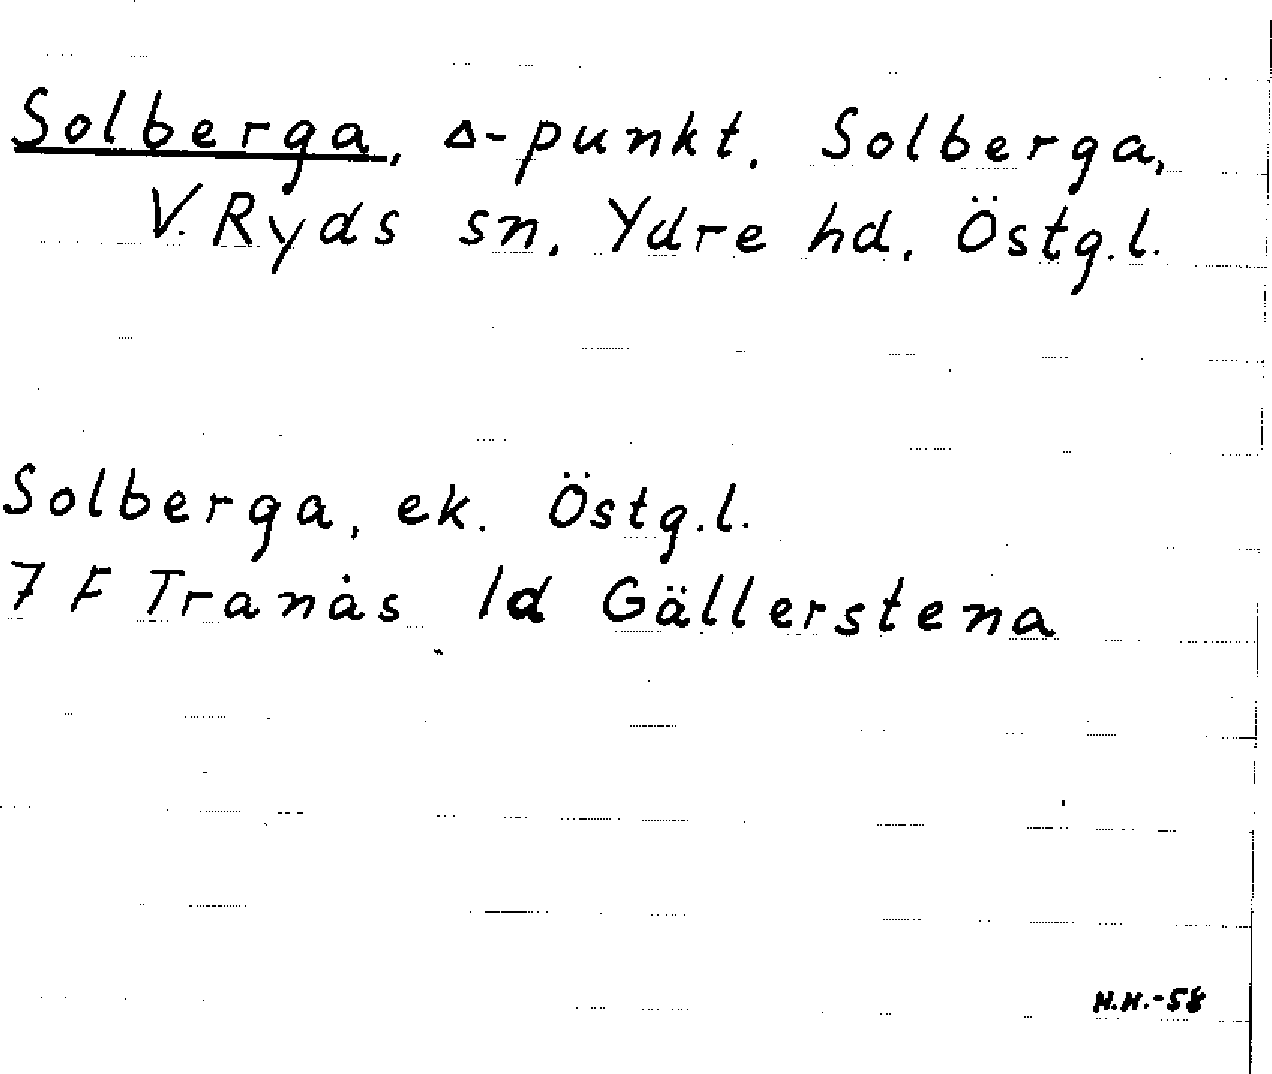 Solberga, Δ-punkt. Solberga,
V. Ryds sn. Ydre hd. Östg.l.
Solberga, ek. Östg.l.
7 F Tranås 1d Gällerstena
H.H.-58